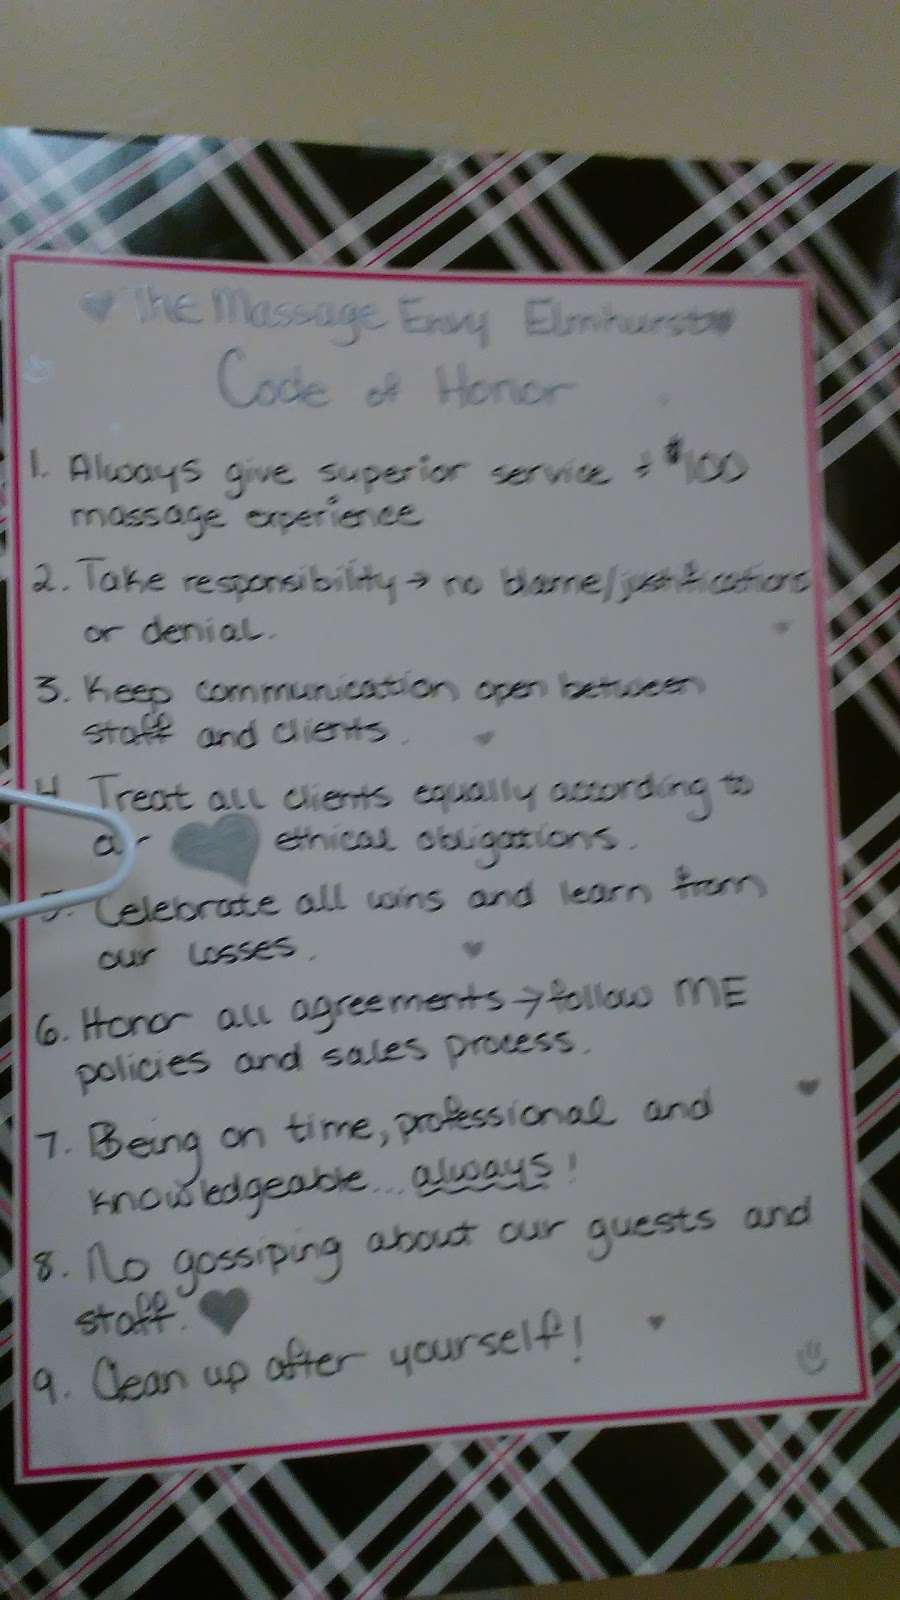 The Massage Envy Elmhurst
Code of Honor
1. Always give superior service + $100
massage experience
2. Take responsibility → no blame/justifications
or denial.
3. Keep communication open between
staff and clients.
4. Treat all clients equally according to
our ethical obligations.
5. Celebrate all wins and learn from
our losses.
6. Honor all agreements → follow ME
policies and sales process.
7. Being on time, professional and
knowledgeable... always!
8. No gossiping about our guests and
staff.
9. Clean up after yourself!